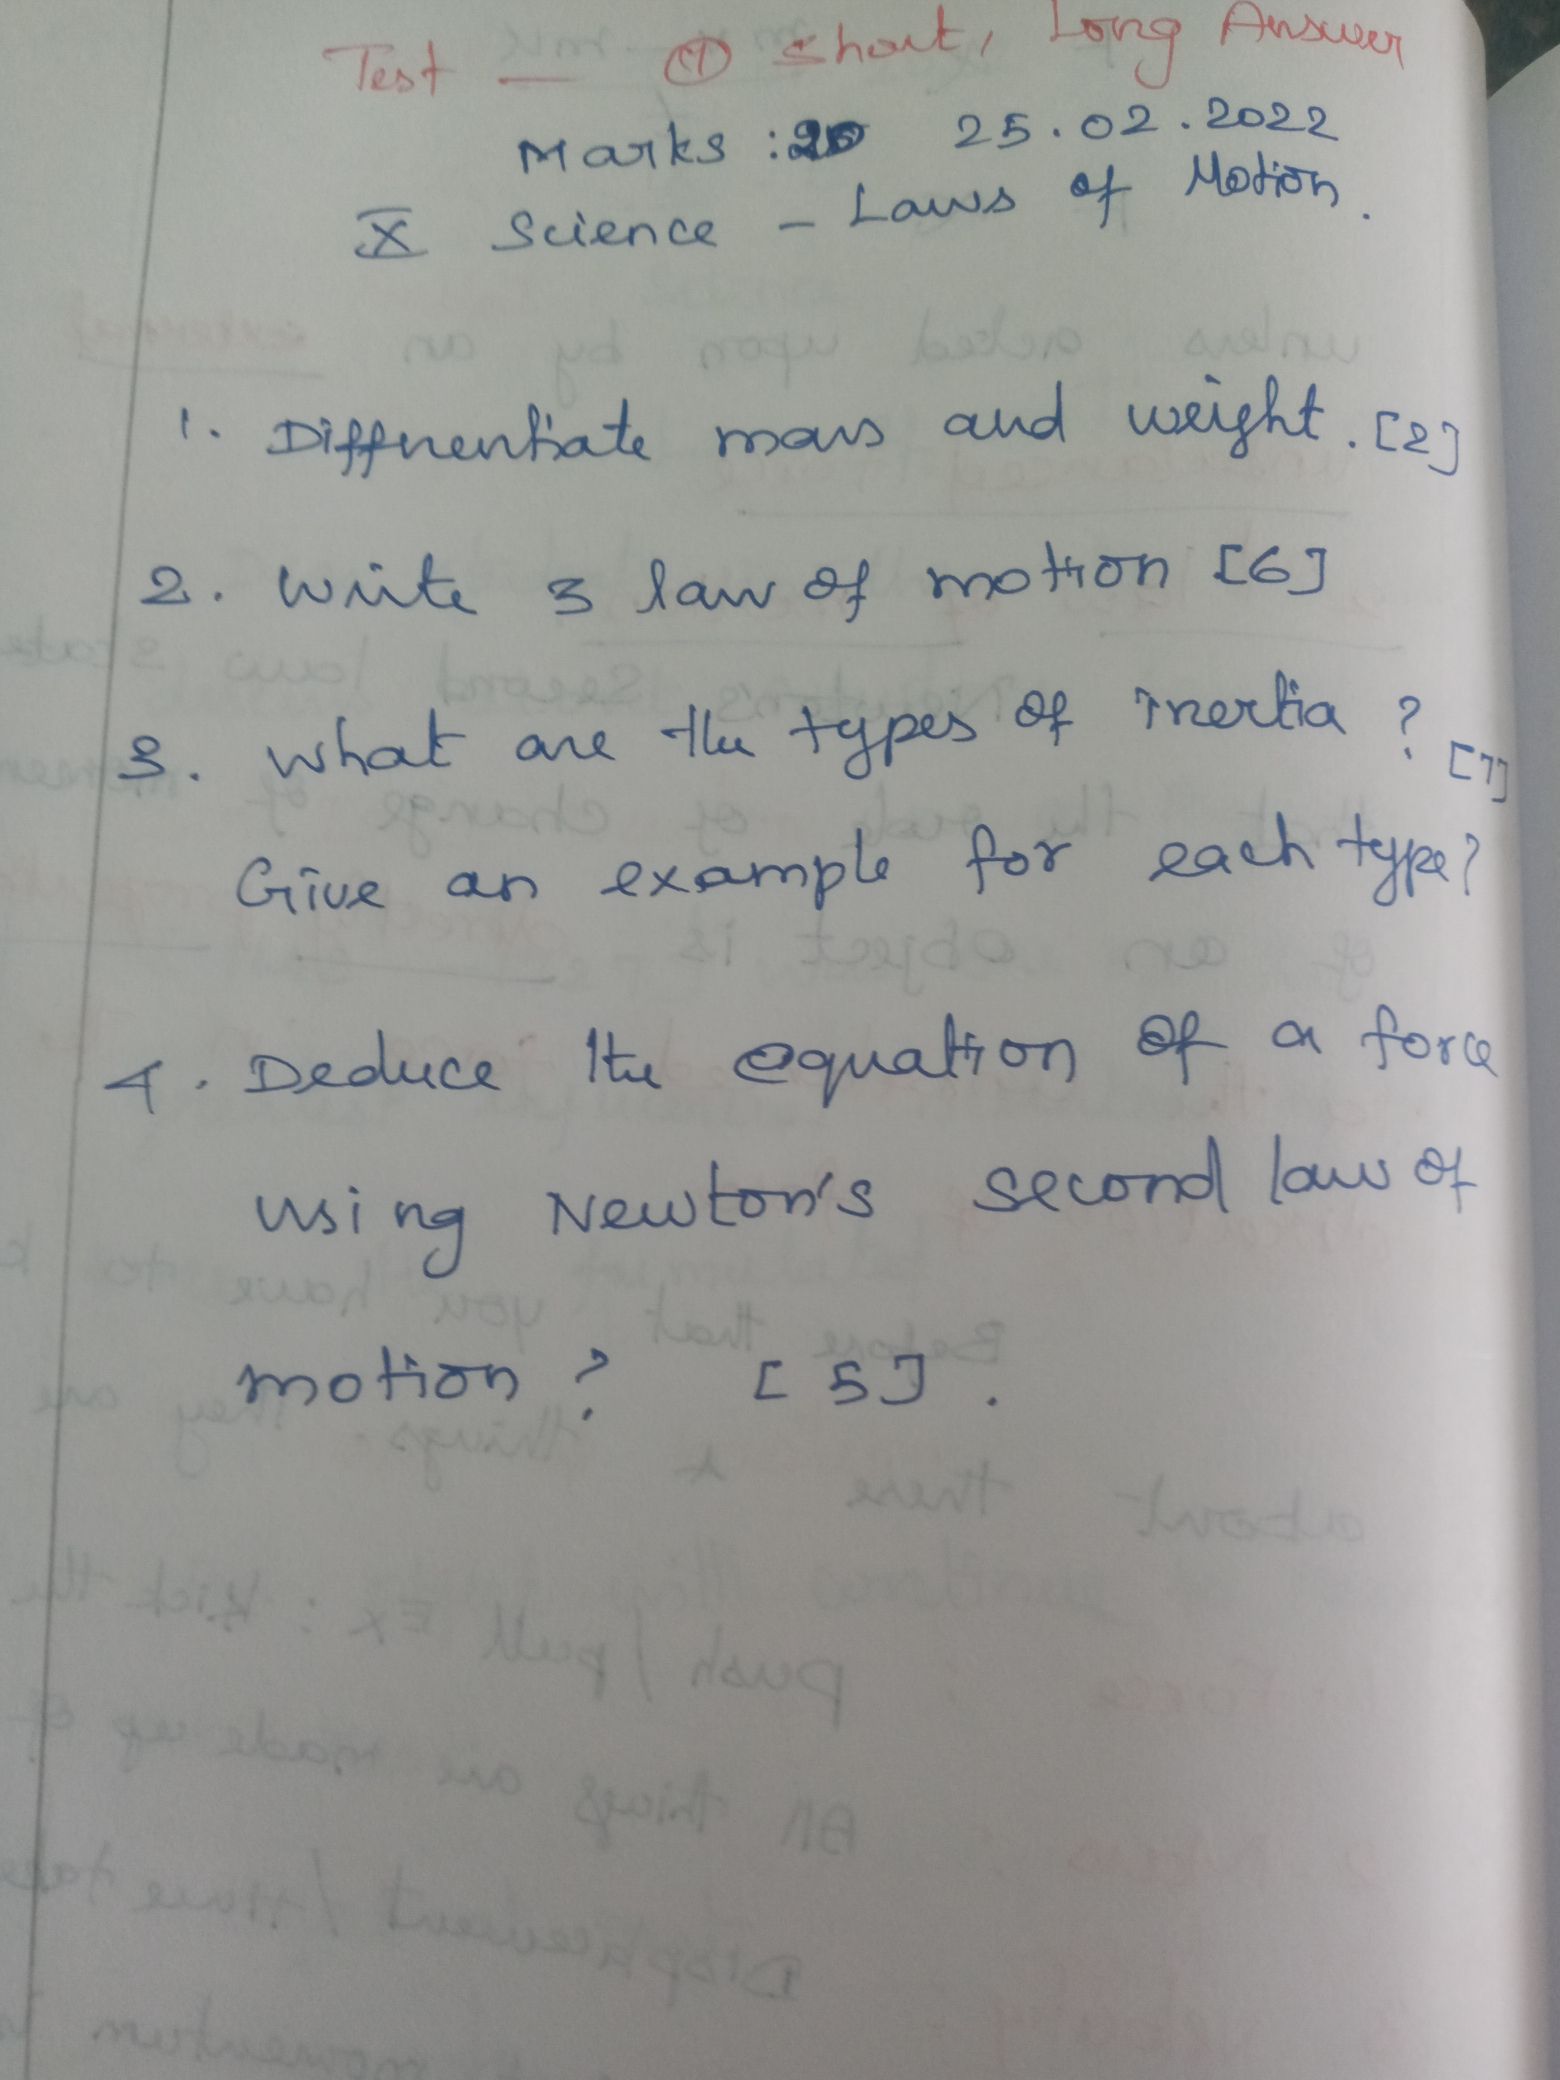 Test — ① Short, Long Answer
Marks : 20 25.02.2022
X Science - Laws of Motion.
1. Differentiate mass and weight. [2]
2. Write 3 law of motion [6]
3. What are the types of Inertia? [7]
Give an example for each type?
4. Deduce the equation of a force
using Newton's second law of
motion? [5].